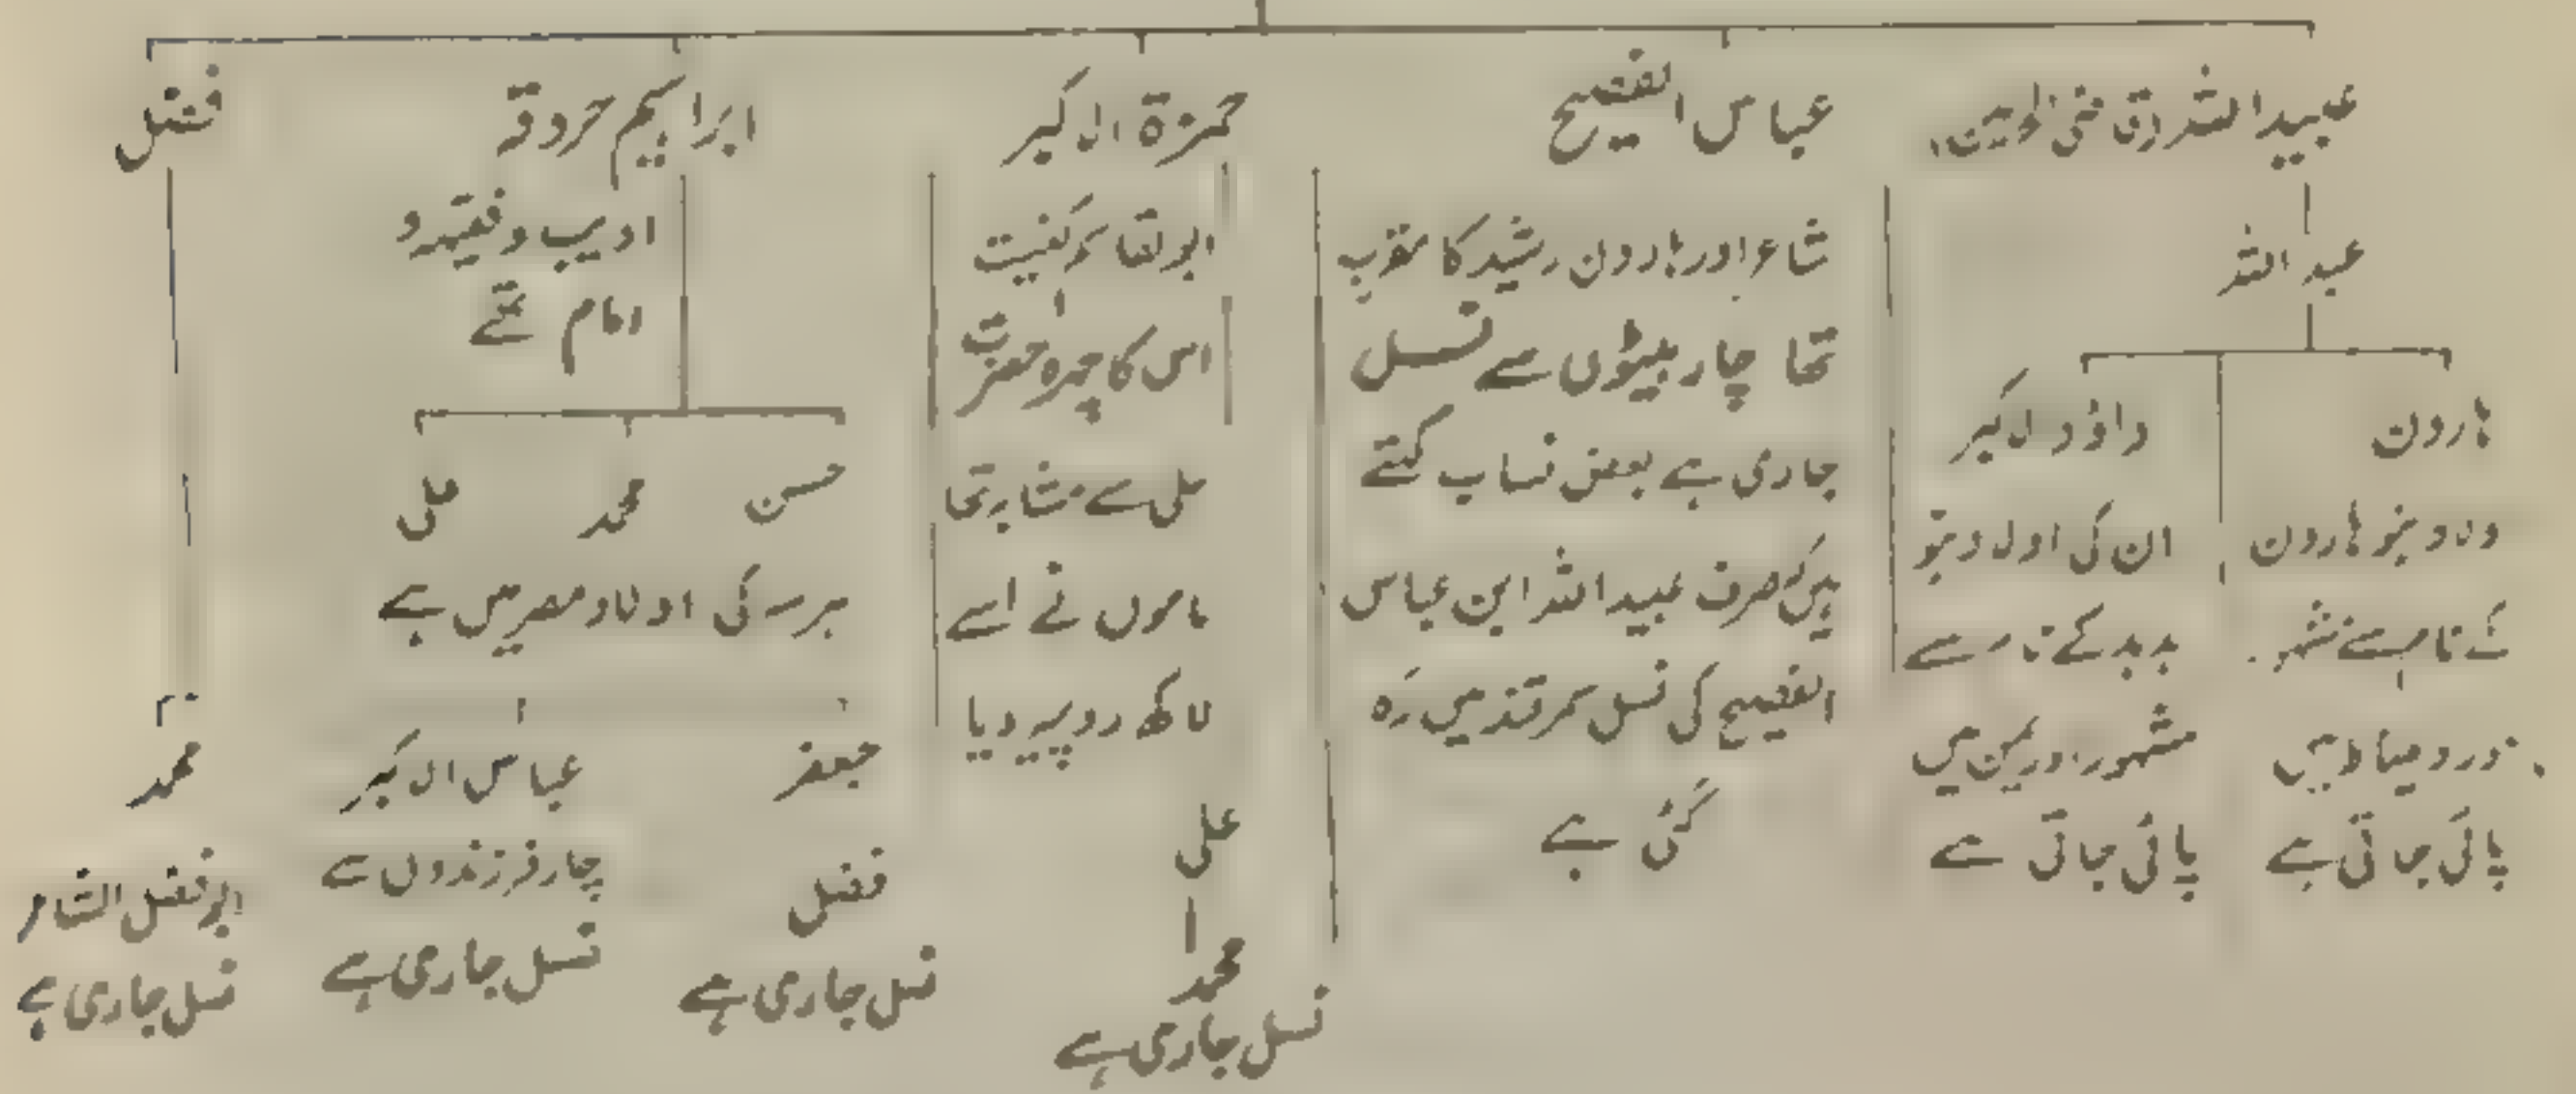 عبیداللہ (قاضی الحرمین)
عبداللہ
ہارون
اولاد بنو ہارون
کے نام سے مشہور
اور دمیاط میں
پائی جاتی ہے
داؤد الاکبر
ان کی اولاد بنو
ہدہد کے نام سے
مشہور اور یمن میں
پائی جاتی ہے
عباس الفصیح
شاعر اور ہارون رشید کا مقرب
تھا چار بیٹوں سے نسل
جاری ہے بعض نساب کہتے
ہیں کہ صرف عبید اللہ ابن عباس
الفصیح کی نسل سمرقند میں رہ
گئی ہے
حمزۃ الاکبر
ابوالقاسم کنیت
اس کا چہرہ حضرت
علی سے مشابہ تھا
ماموں نے اسے
لاکھ روپیہ دیا
علی
محمد
نسل جاری ہے
ابراہیم جردقہ
ادیب و فقیہ و
امام تھے
حسن
محمد
علی
ہر سہ کی اولاد مصر میں ہے
فضل
جعفر
فضل
نسل جاری ہے
عباس الاکبر
چار فرزندوں سے
نسل جاری ہے
محمد
ابوفضل الشاعر
نسل جاری ہے